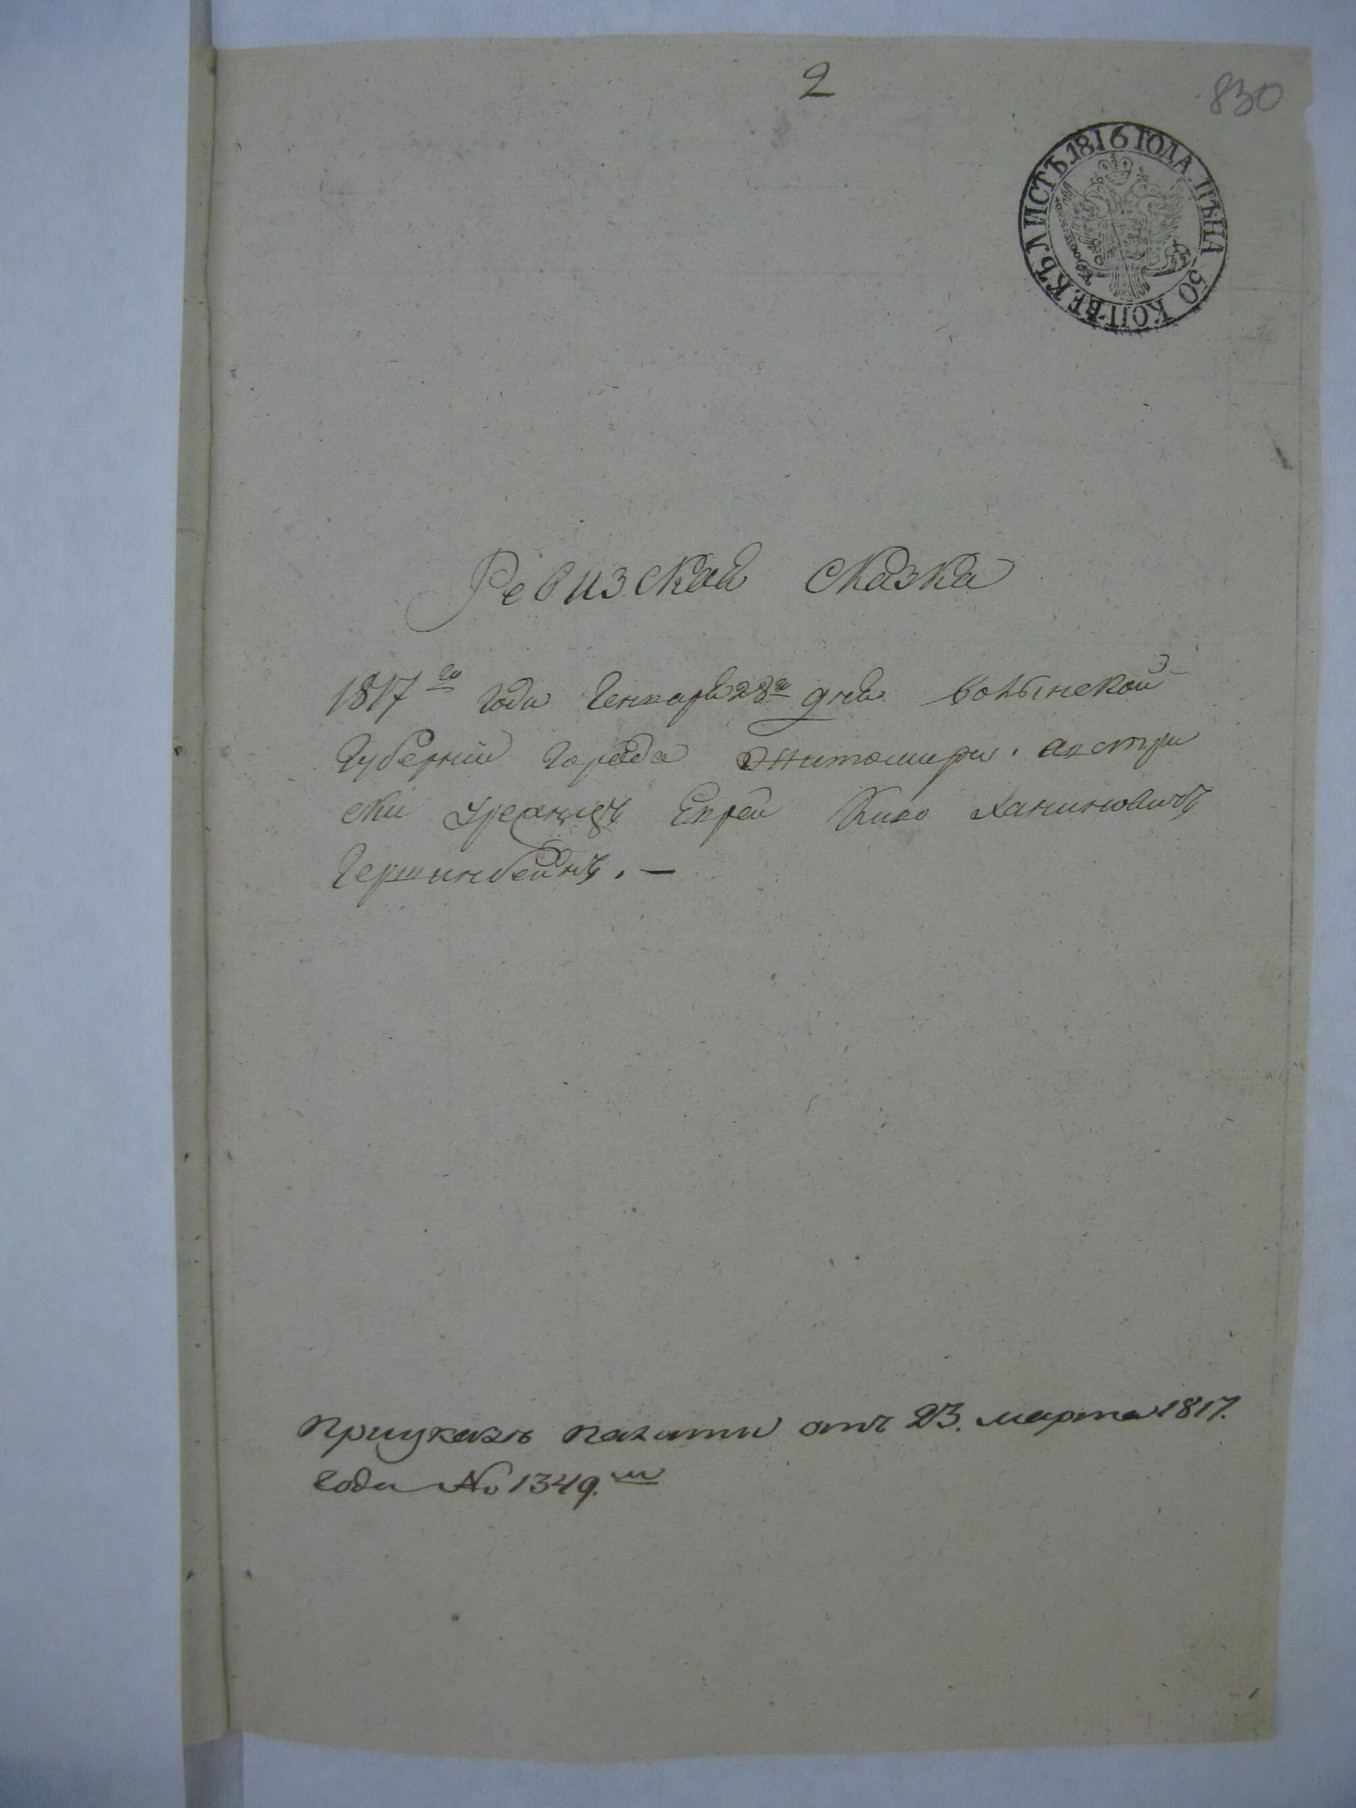 2
830
ЛИСТЪ 1816 ГОДА. ЦѢНА 50 КОПѢЕКЪ
Ревизская сказка
1817го года Генваря 28го дня Волынской
Губернїи Города Житомира. австри
ски Еврей Ханиновичъ
Гершинбейнъ. —
При указѣ палати отъ 23. марта 1817.
года № 1349.м